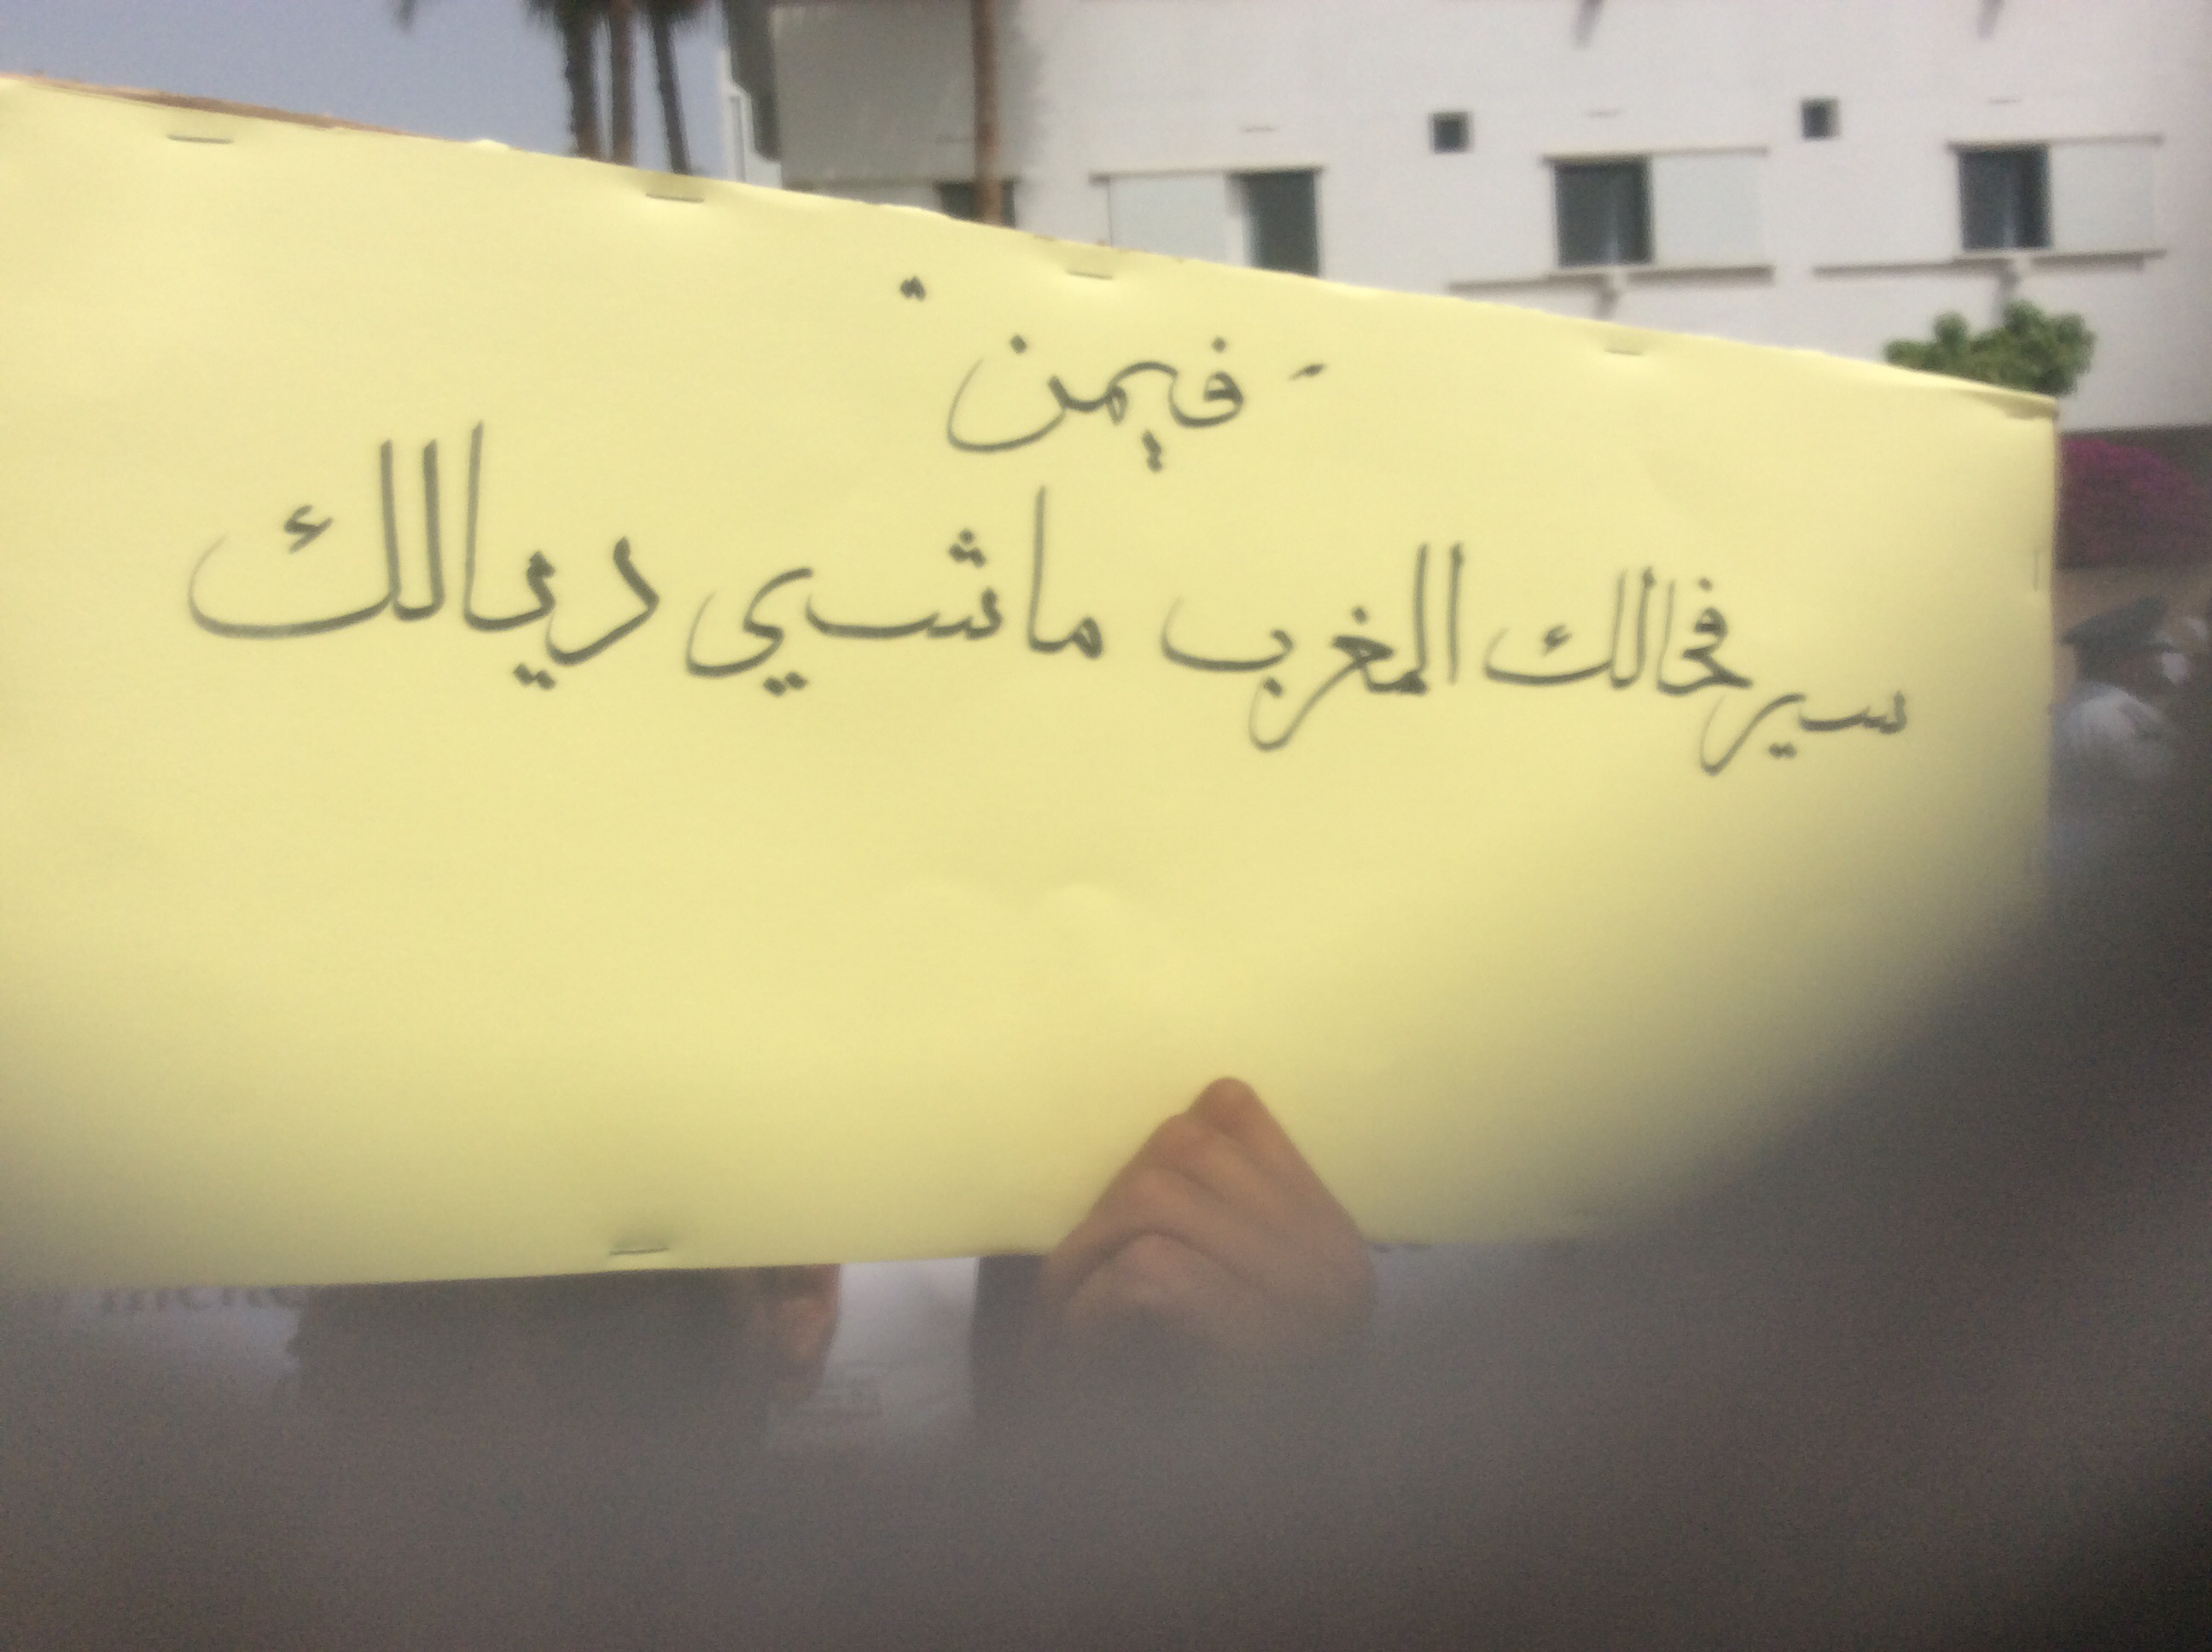 - فيمن
سير فحالك المغرب ماشي ديالك